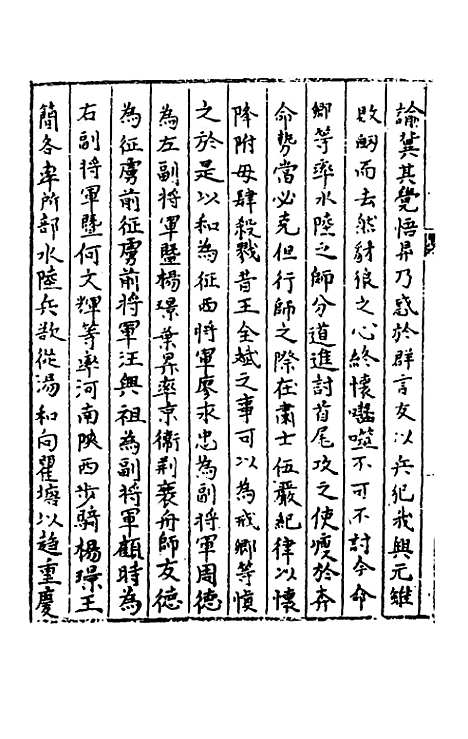 諭冀其覺悟昇乃惑於群言友以兵犯我興元雖
敗衂而去然豺狼之心終懷囓噬不可不討今命
卿等率水陸之師分道進討首尾攻之使疲於奔
命勢當必克但行師之際在肅士伍嚴紀律以懷
降附毋肆殺戮昔王全斌之事可以為戒卿等慎
之於是以和為征西將軍廖永忠為副將軍周德
為左副將軍暨楊璟葉昇率京衞荆襄舟師友德
為征虜前征虜前將軍汪興祖為副將軍顧時為
右副將軍暨何文輝等率河南陝西步騎楊璟王
簡各率所部水陸兵欲從湯和向瞿塘以趋重慶